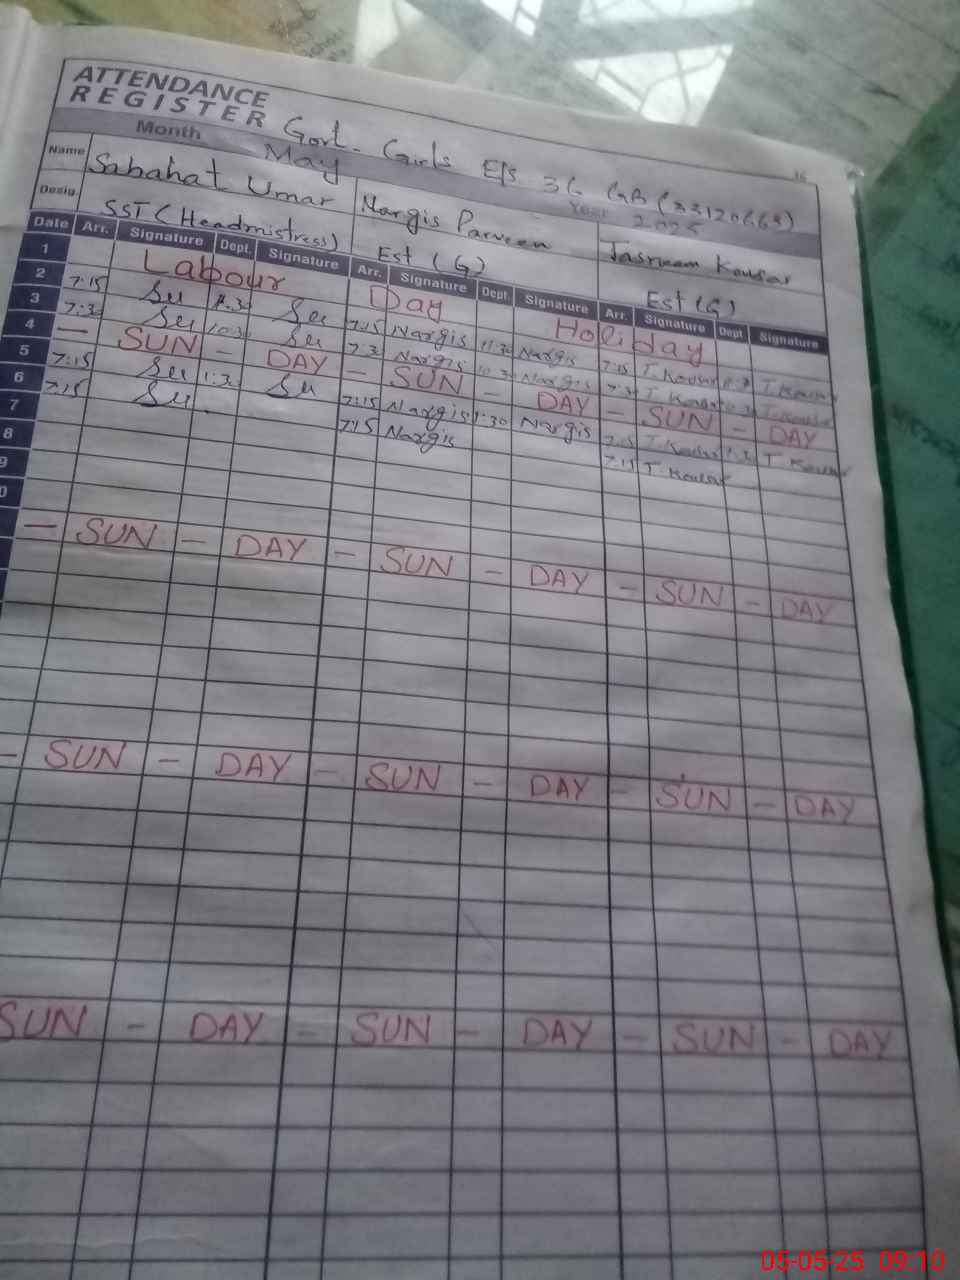 ATTENDANCE
REGISTER
Govt. Girls E/s 36 GB (33120663)
Month May Year 2025
Name Sabahat Umar Nargis Parveen Tasneem Kousar
Desig. SST (Headmistress) Est (G) Est (G)
Date Arr. Signature Dept. Signature Arr. Signature Dept. Signature Arr. Signature Dept Signature
1 Labour Day Holiday
2 7:15 7:15 Nargis 11:30 Nargis 7:15 T. Kousar T. Kousar
3 7:30 10:30 7:30 Nargis 10:30 Nargis 7:30 T. Kousar T. Kousar
4 — SUN — DAY — SUN — DAY — SUN — DAY
5 7:15 1:30 7:15 Nargis 1:30 Nargis 7:15 T. Kousar 1:30 T Kousar
6 7:15 7:15 Nargis 7:15 T. Kousar
7
8
9
0
— SUN — DAY — SUN — DAY — SUN — DAY
— SUN — DAY — SUN — DAY — SUN — DAY
SUN — DAY — SUN — DAY — SUN — DAY
05-05-25 09:10